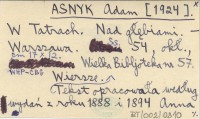 ASNYK Adam [1924].
W Tatrach. Nad głębiami. -
Warszawa. 54, okł.,
17 x 12. Wielka Bibljoteka nr 57.
WMP-CBG Wiersze. -
Tekst opracowała według
wydań z roku 1888 i 1894 Anna